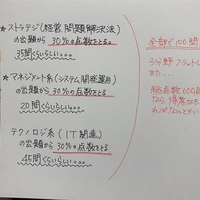 ★ストラテジ(経営、問題解決法)
の出題から 30%の点数をとる。
35問くらいらしい〜〜
★マネジメント系(システム開発運用)
の出題から 30%の点数をとる
20問くらいらしい〜〜
テクノロジ系(IT関連)
の出題から 30%の点数をとる
45問くらいらしい〜〜
全部で100問
3分野
総合点数600点
なら